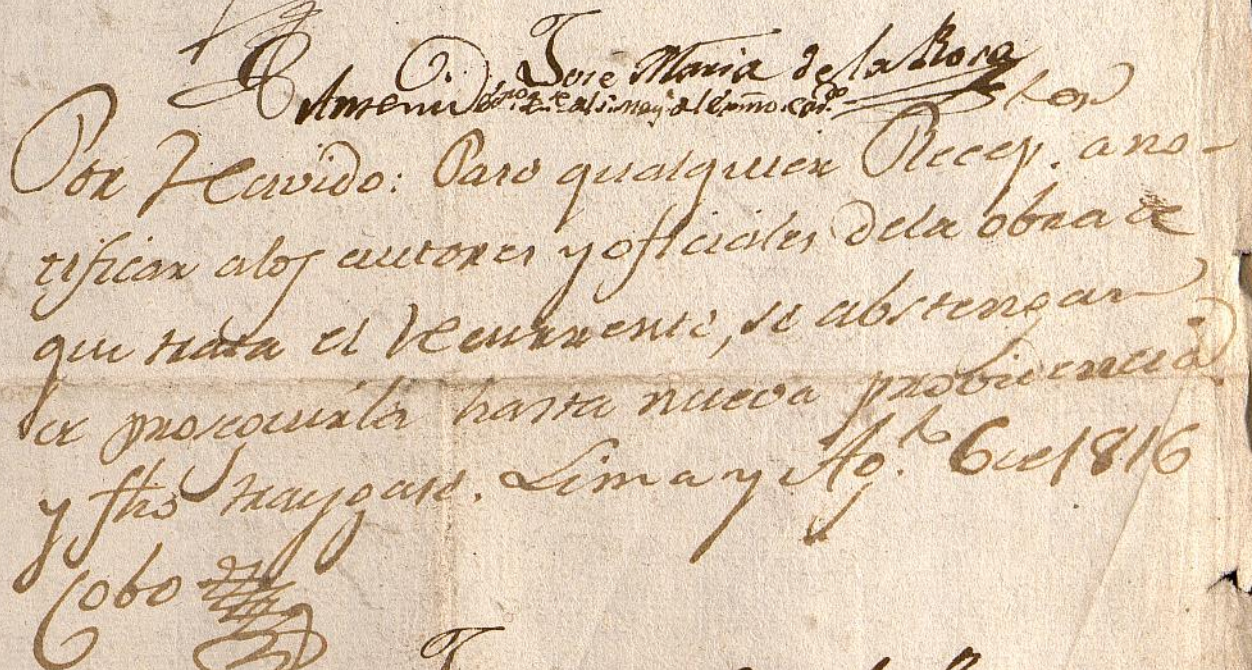 Jose Maria de la Rosa
Ante mi
tor
Por Recivido: Pase qualquier Recep. a no-
tificar a los autores y oficiales de la obra de
que trata el Recurrente, se abstengan
de proseguirla hasta nueva probidencia
y fho traygase. Lima y Ag.to 6 de 1816
Cobo